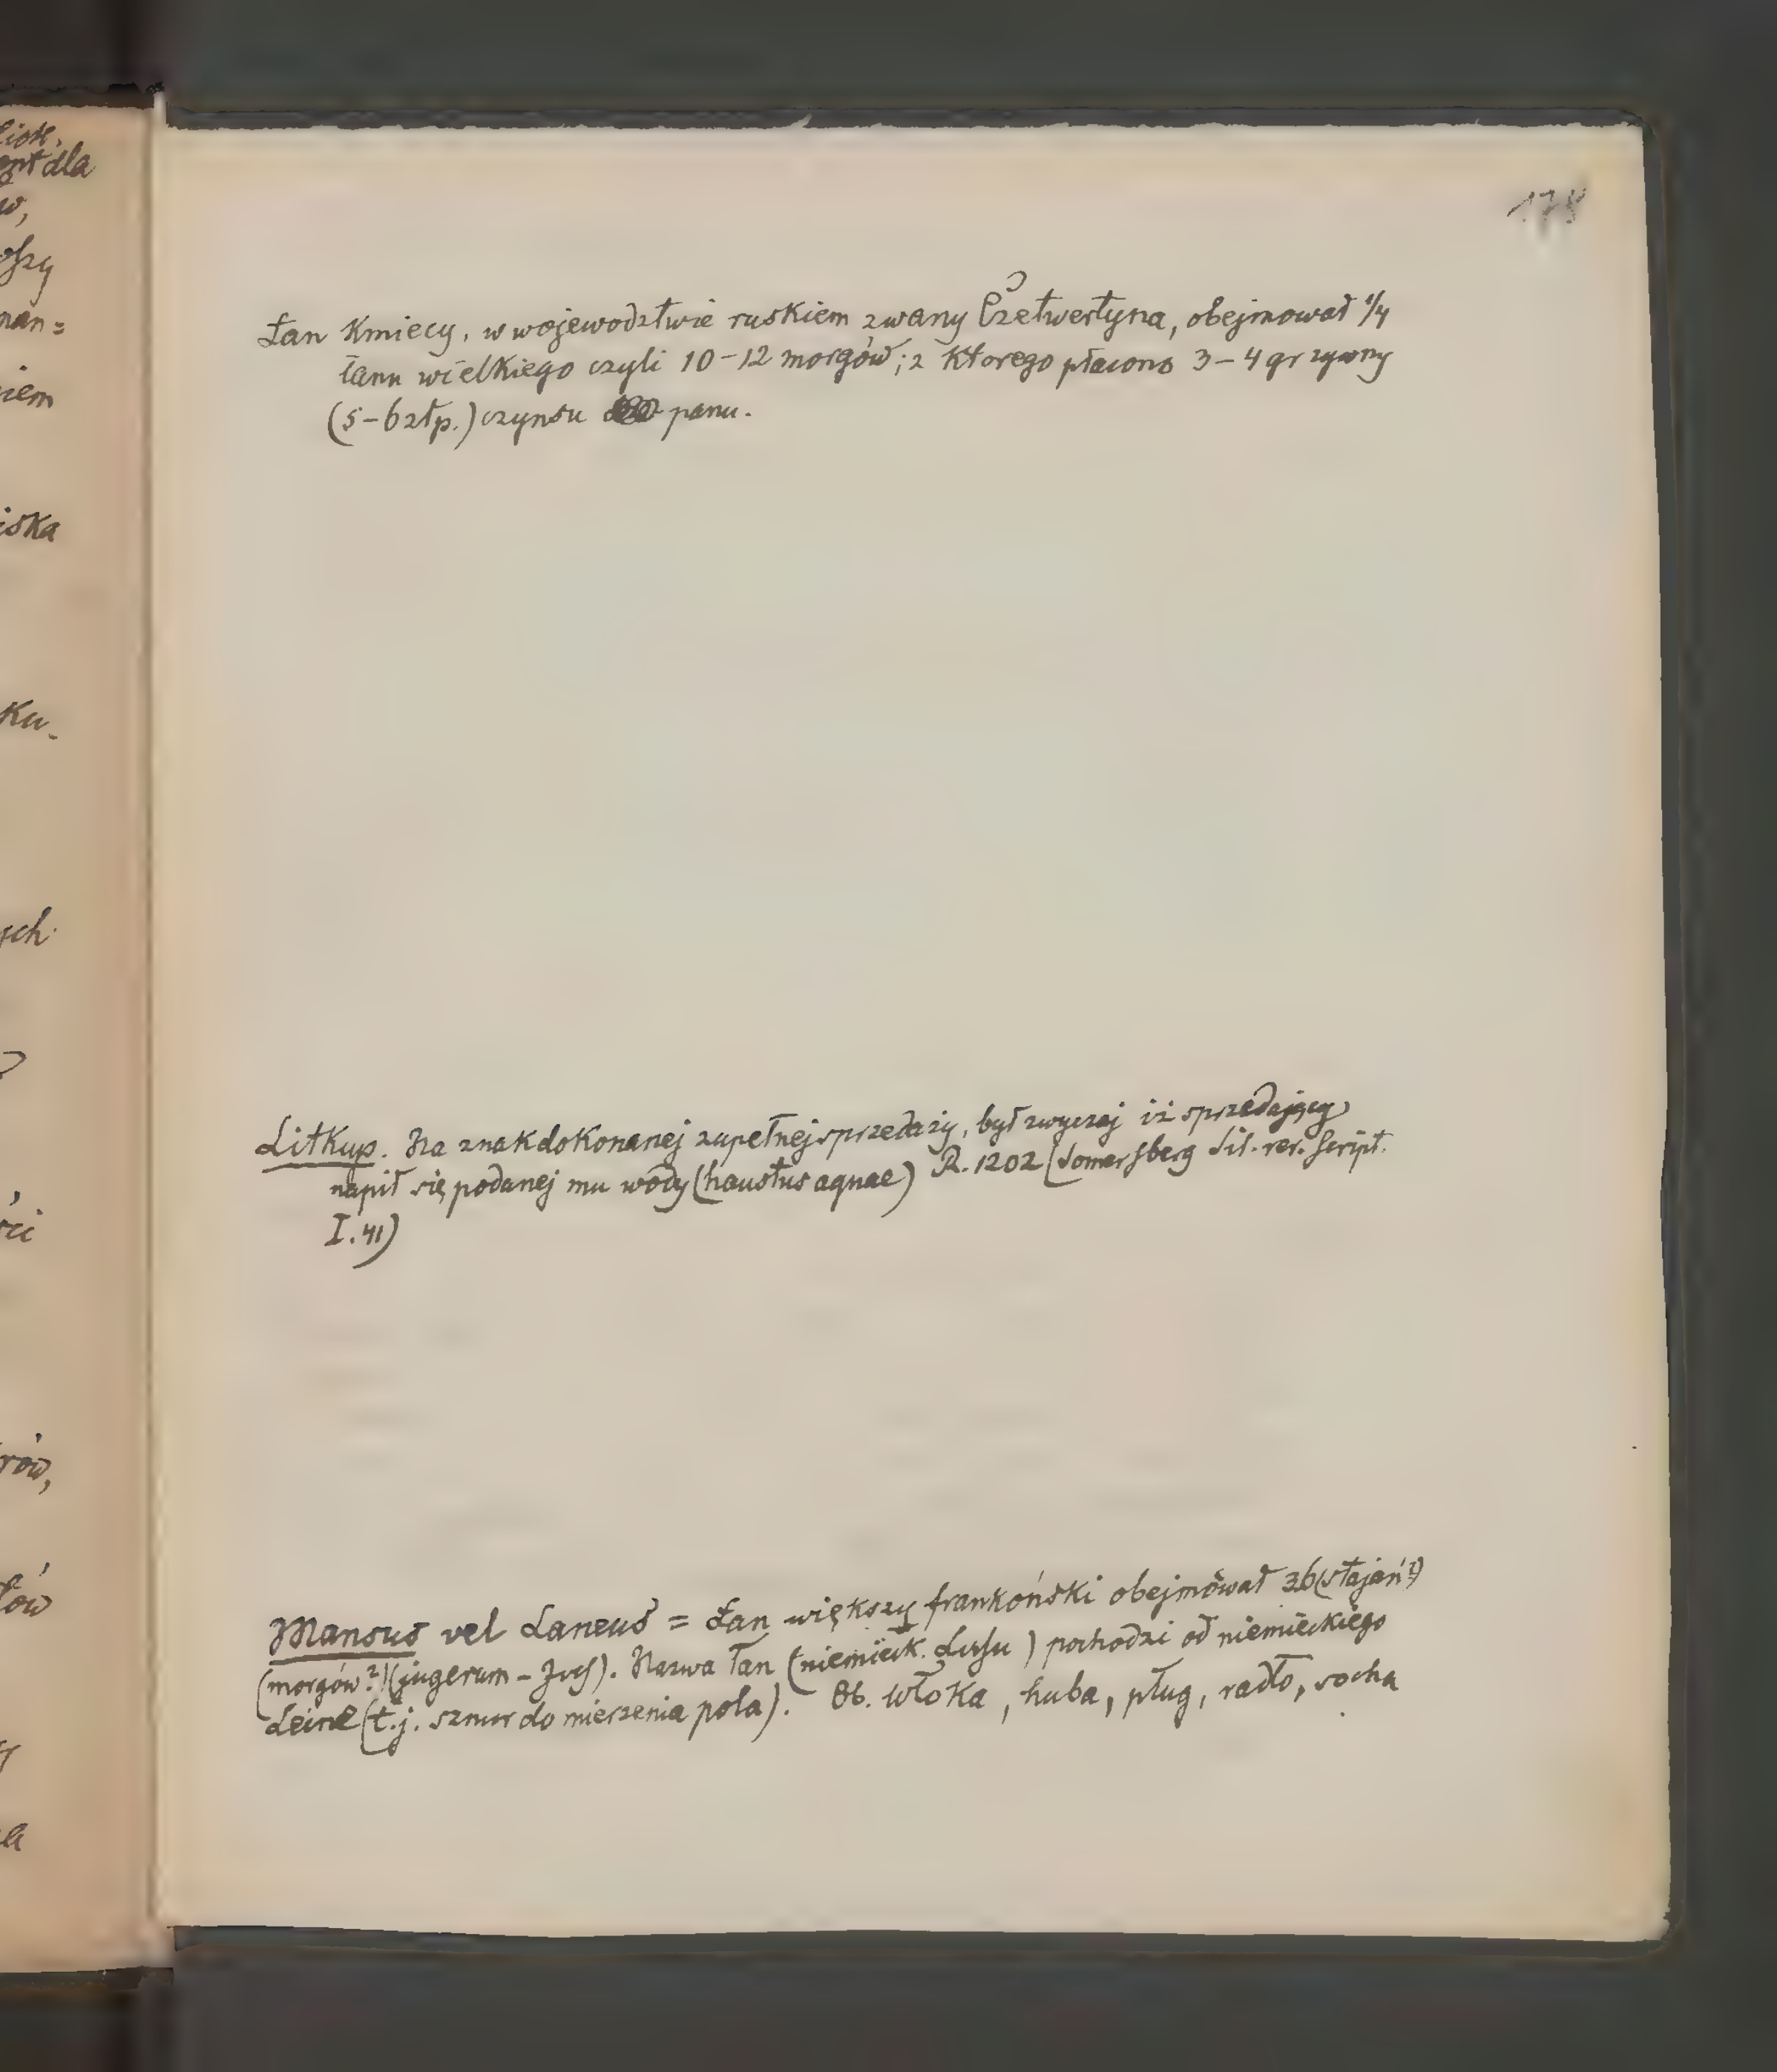 178
Łan Kmiecy, w wojewodztwie ruskiem zwany Czetwertyna, obejmował 1/4
łanu wielkiego czyli 10-12 morgów; z ktorego płacono 3-4 grzywny
(5-6 złp.) czynsu panu.
Litkup. Na znak dokonanej zupełnej sprzedaży, był zwyczaj iż sprzedający
napił się podanej mu wody (haustus aquae) R. 1202 (Somersberg Sil. rer. Script.
I. 41)
Mansus vel Laneus = Łan większy frankoński obejmował 36 (stajań?)
(morgów?) (jugerum - ). Nazwa łan (niemieck. ) pochodzi od niemieckiego
Leine (t.j. sznur do mierzenia pola). Ob. Włoka, huba, pług, radło, socha